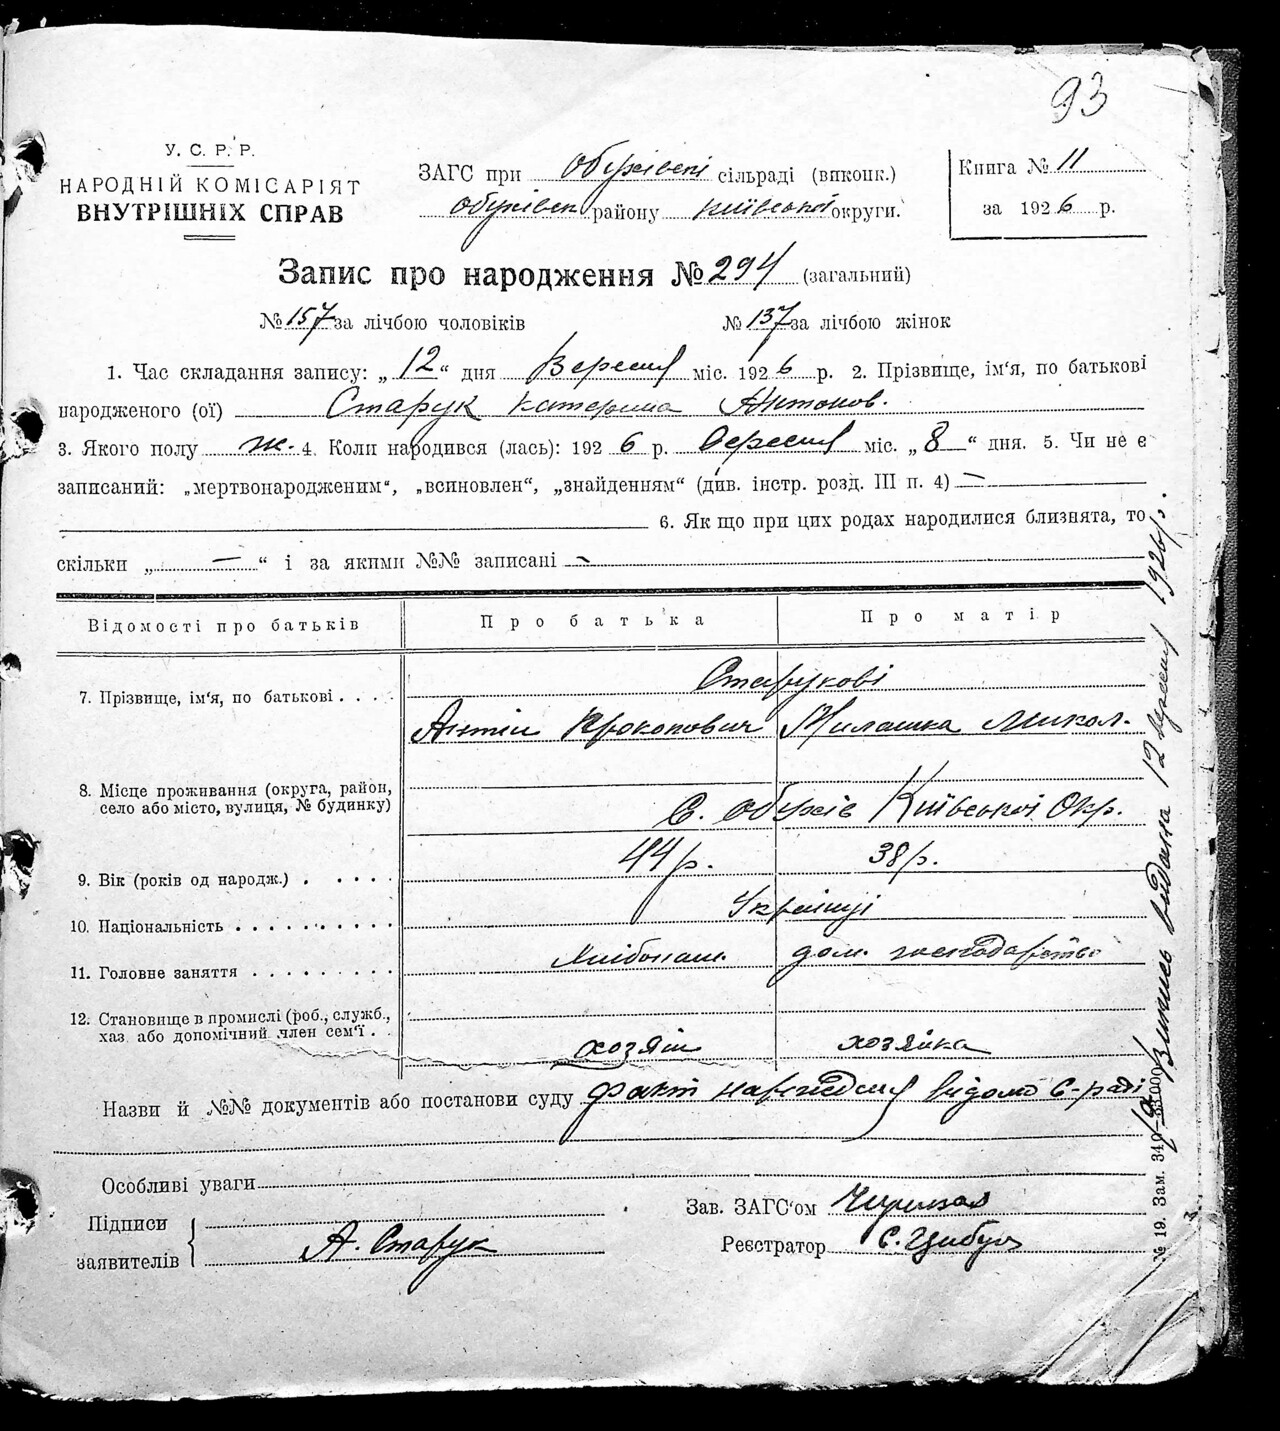 93
У. С. Р. Р.
НАРОДНІЙ КОМІСАРІЯТ
ВНУТРІШНІХ СПРАВ
ЗАГС при Обухівскі сільраді (виконк.)
Обухівск району Київської округи.
Книга № 11
за 1926 р.
Запис про народження № 294 (загальний)
№ 157 за лічбою чоловіків № 137 за лічбою жінок
1. Час складання запису: „12“ дня Вересня міс. 1926 р. 2. Прізвище, ім'я, по батькові
народженого (ої) Старук Катерина Антонов.
3. Якого полу ж. 4. Коли народився (лась): 1926 р. Вересня міс. „8“ дня. 5. Чи не є
записаний: „мертвонародженим“, „всиновлен“, „знайденням“ (див. інстр. розд. III п. 4) —
6. Як що при цих родах народилися близнята, то
скільки „ — “ і за якими №№ записані —
Відомості про батьків Про батька Про матір
7. Прізвище, ім'я, по батькові . . . . Старукові
Антін Прокопович Милашка Микол.
8. Місце проживання (округа, район,
село або місто, вулиця, № будинку) С. Обухів Київської Окр.
9. Вік (років од народж.) . . . . . 44 р. 38 р.
10. Національність . . . . . . . . . . Українці
11. Головне заняття . . . . . . . . . Хлібопаш. дом. господарство
12. Становище в промислі (роб., служб.,
хаз. або допомічний член сем'ї . . хозяїн хозяйка
Назви й №№ документів або постанови суду факт народження відомо С-раді
Особливі уваги
Підписи
заявителів А. Старук
Зав. ЗАГС'ом
Реєстратор С. Цибул
Випись видана 12 вересня 1926 р.
№ 19. Зам. 340—35.000